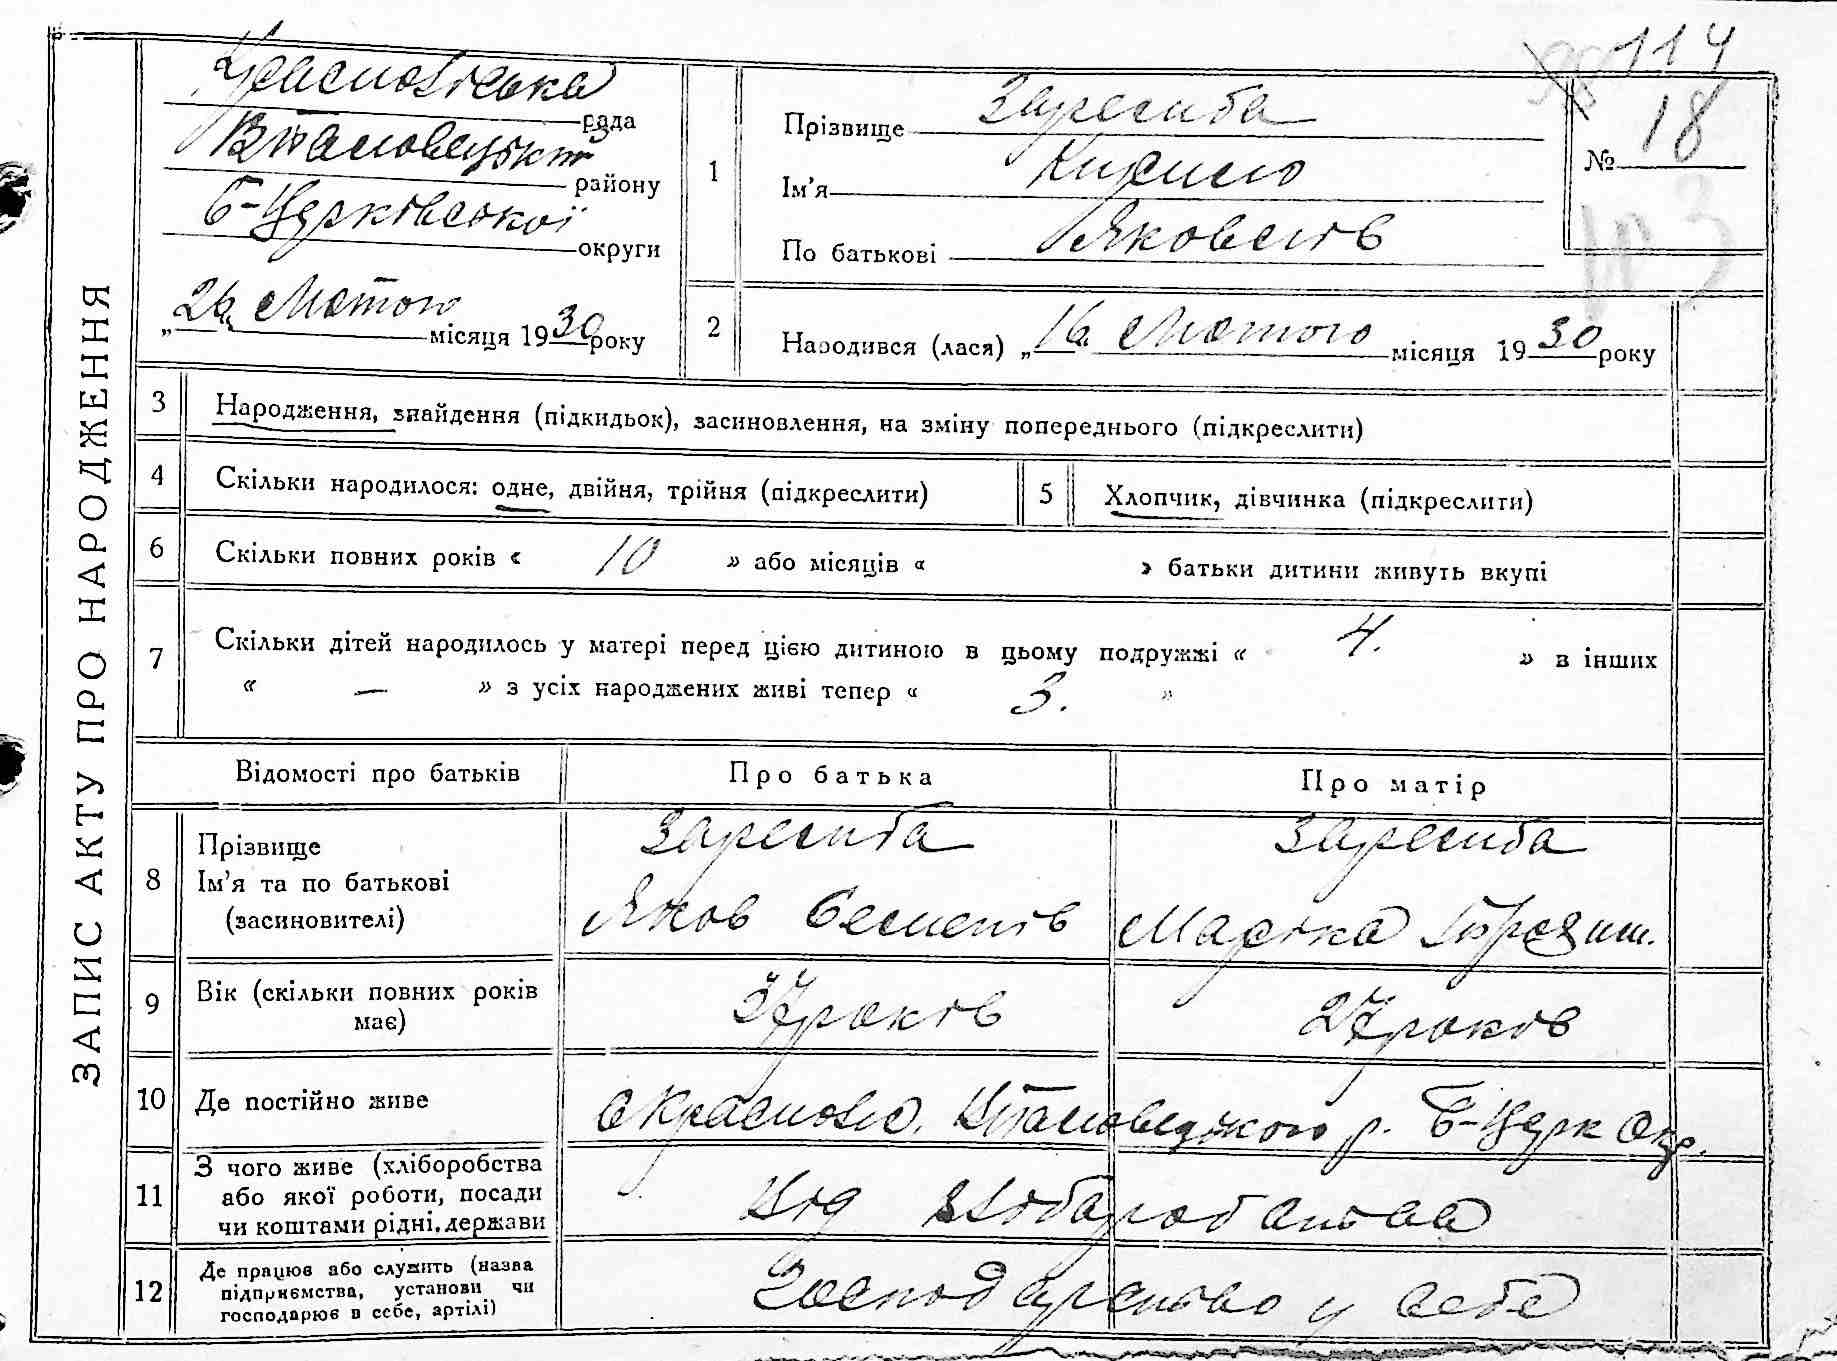 ЗАПИС АКТУ ПРО НАРОДЖЕННЯ
114
рада
району
Б-Церківської
округи
„26„ Лютого місяця 1930 року
1
Прізвище
Ім'я Кирило
По батькові Яковлів
№ 18
103
2
Народився (лася) „16„ Лютого місяця 1930 року
3
Народження, знайдення (підкидьок), засиновлення, на зміну попереднього (підкреслити)
4
Скільки народилося: одне, двійня, трійня (підкреслити)
5
Хлопчик, дівчинка (підкреслити)
6
Скільки повних років « 10 » або місяців « » батьки дитини живуть вкупі
7
Скільки дітей народилось у матері перед цією дитиною в цьому подружжі « 4. » в інших
« — » з усіх народжених живі тепер « 3. »
Відомості про батьків
Про батька
Про матір
8
Прізвище
Ім'я та по батькові
(засиновителі)
Яков Семенів
Марія
9
Вік (скільки повних років
має)
37 років
27 років
10
Де постійно живе
р. Б-Церк Окр.
11
З чого живе (хліборобства
або якої роботи, посади
чи коштами рідні, держави
Від хліборобства
12
Де працює або служить (назва
підприємства, установи чи
господарює в себе, артілі)
Господарство у себе